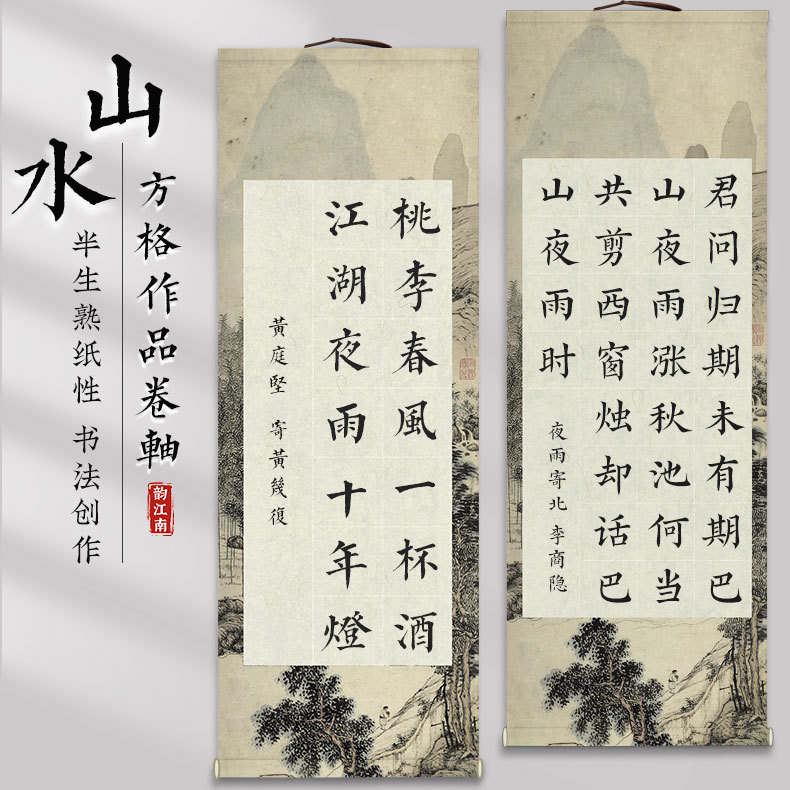 山水
方格作品卷軸
韵江南
半生熟纸性 书法创作
桃李春風一杯酒
江湖夜雨十年燈
黃庭堅 寄黃幾復
君问归期未有期巴
山夜雨涨秋池何当
共剪西窗烛却话巴
山夜雨时
夜雨寄北 李商隐